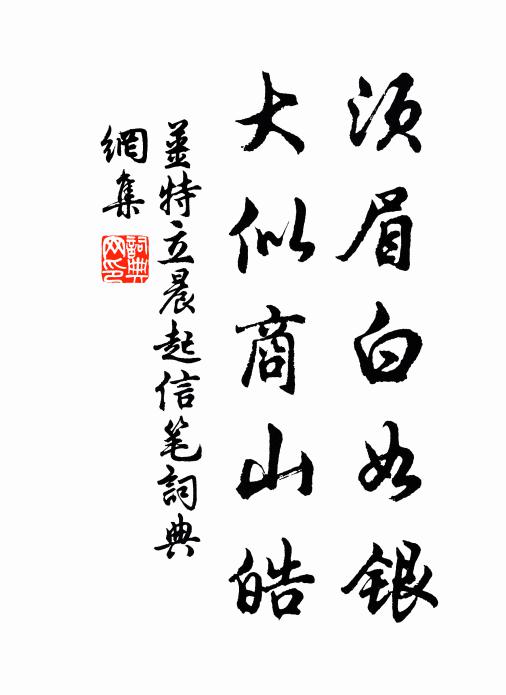 须眉白如银
大似商山皓
姜特立晨起信笔詞典
網集
詞典网印